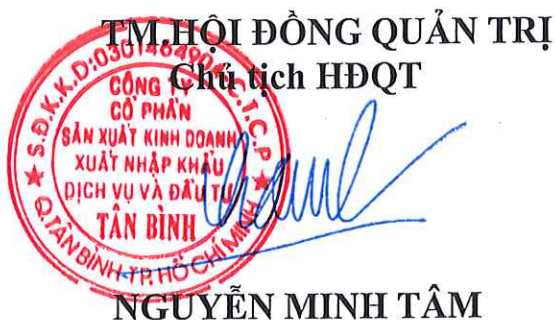 TM.HỘI ĐỒNG QUẢN TRỊ
Chủ tịch HĐQT
S.Đ.K.K.D:0301464904-C.T.C.P
CÔNG TY
CỔ PHẦN
SẢN XUẤT KINH DOANH
XUẤT NHẬP KHẨU
DỊCH VỤ VÀ ĐẦU TƯ
TÂN BÌNH
Q.TÂN BÌNH-T.P. HỒ CHÍ MINH
NGUYỄN MINH TÂM